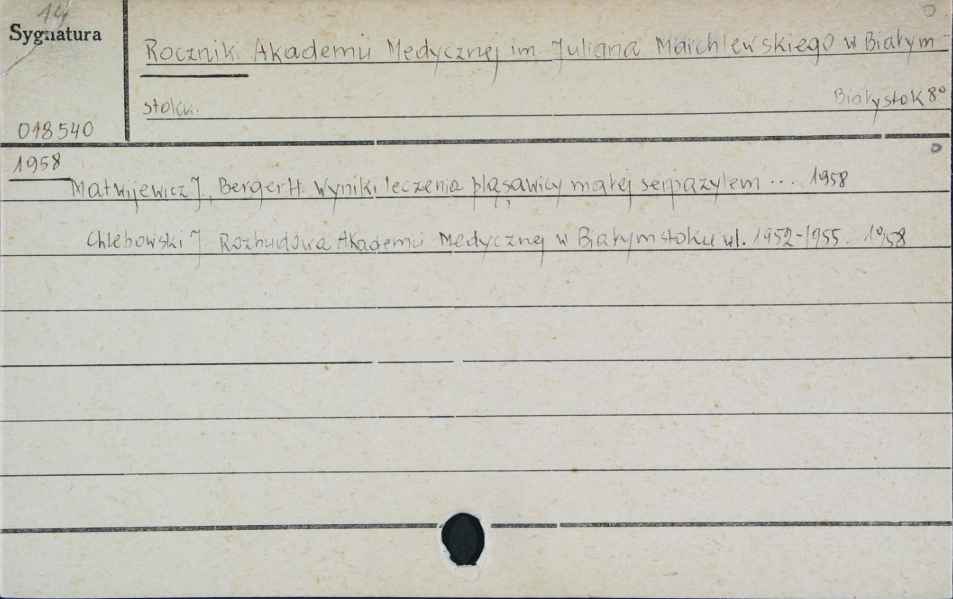 14
Sygnatura
Rocznik Akademii Medycznej im. Juliana Marchlewskiego w Białym-
stoku.
Białystok 8°
018540
1958
Matwijewicz J, Berger H. Wyniki leczenia pląsawicy małej serpazylem ... 1958
Chlebowski J Rozbudowa Akademii Medycznej w Białymstoku wl. 1952-1955.